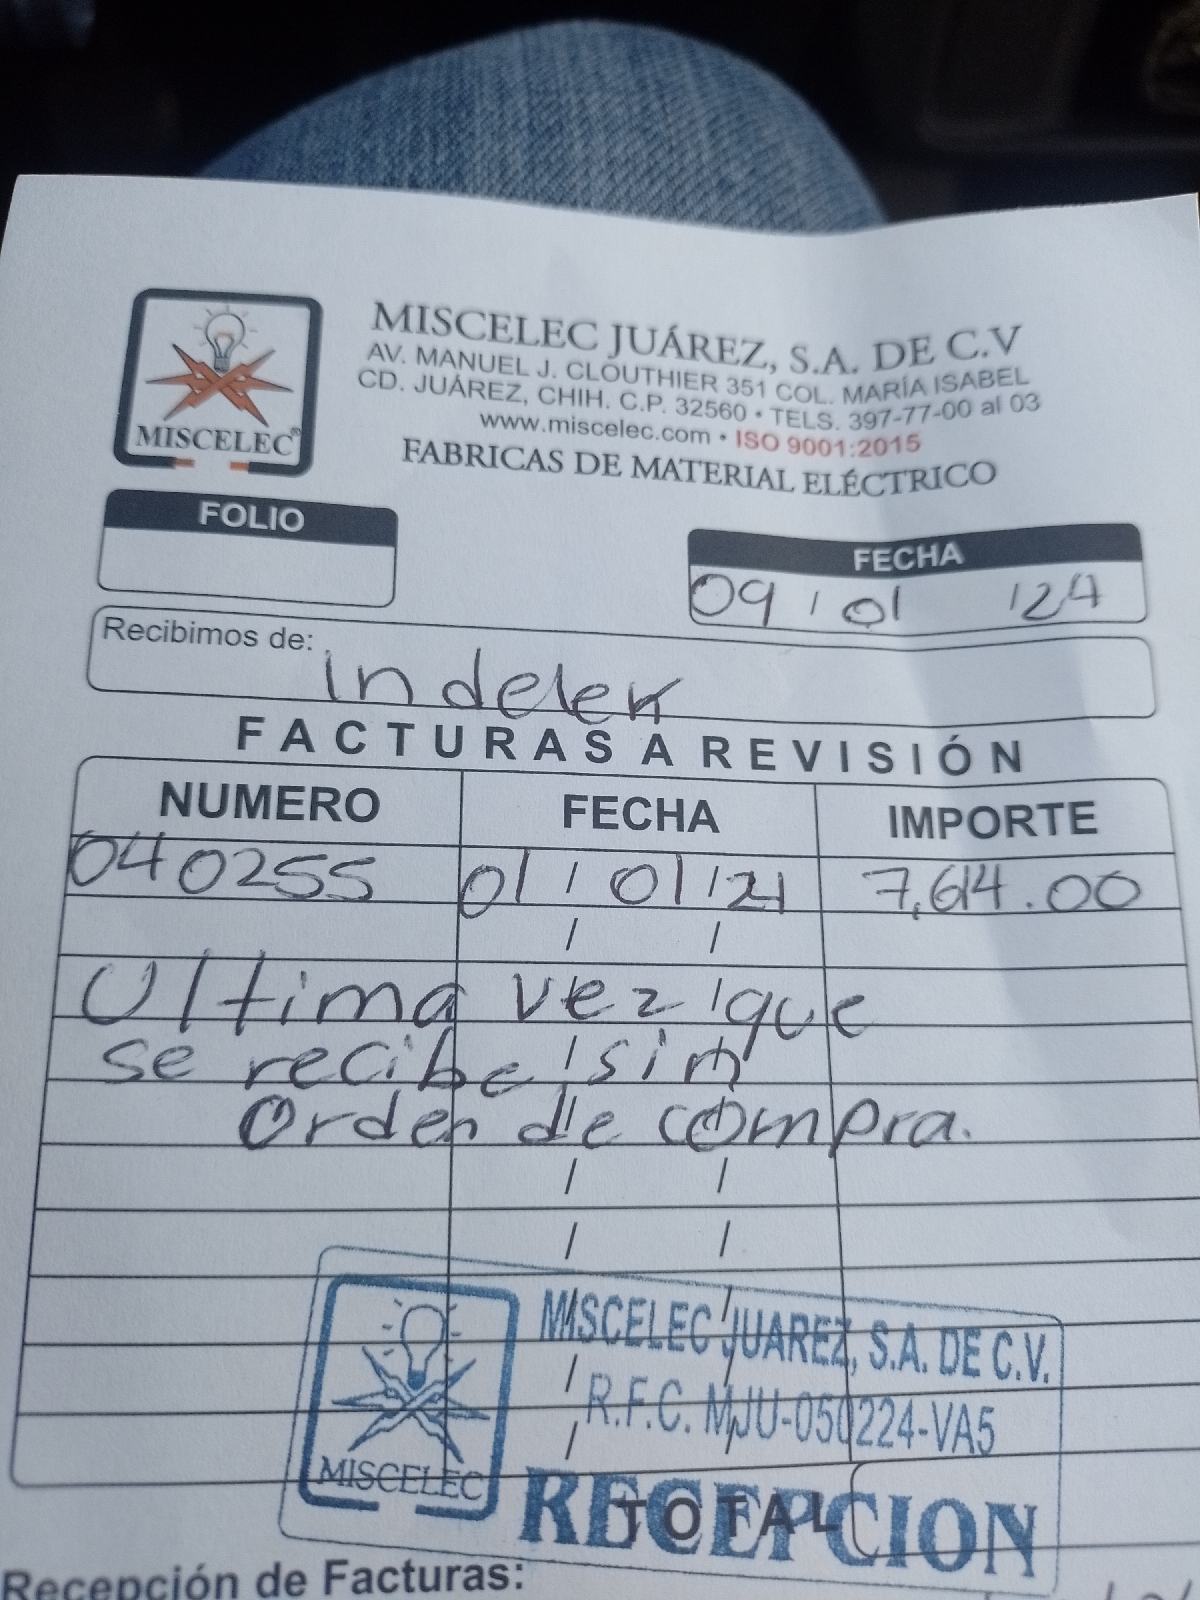 MISCELEC®
MISCELEC JUÁREZ, S.A. DE C.V
AV. MANUEL J. CLOUTHIER 351 COL. MARÍA ISABEL
CD. JUÁREZ, CHIH. C.P. 32560 • TELS. 397-77-00 al 03
www.miscelec.com • ISO 9001:2015
FABRICAS DE MATERIAL ELÉCTRICO
FOLIO
FECHA
09 / 01 / 24
Recibimos de: Indelek
FACTURAS A REVISIÓN
NUMERO FECHA IMPORTE
040255 01 / 01 / 24 7,614.00
/ /
Ultima vez / que
se recibe / sin
Orden de compra.
/ /
/ /
MISCELEC JUAREZ, S.A. DE C.V.
R.F.C. MJU-050224-VA5
MISCELEC
RECEPCION
TOTAL
Recepción de Facturas: